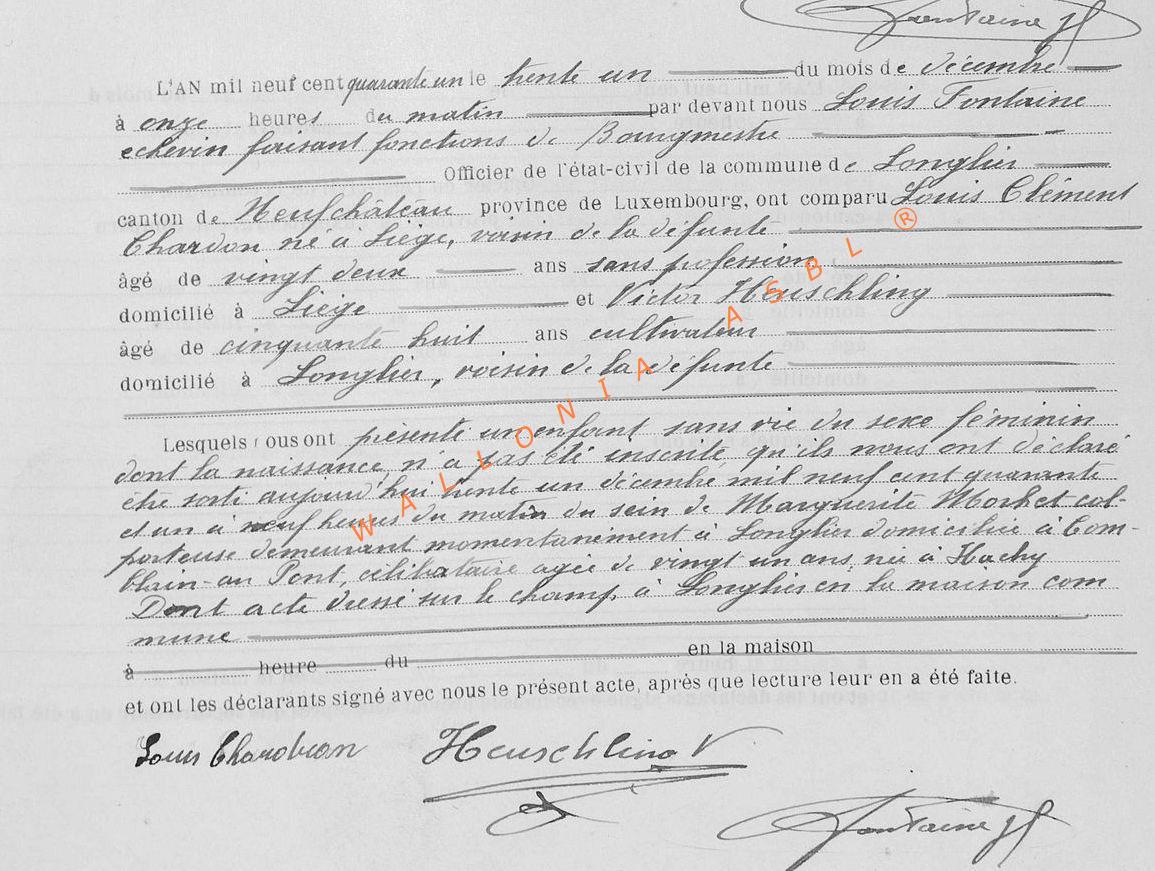 Fontaine
L'AN mil neuf cent quarante un le trente un du mois de décembre
à onze heures du matin par devant nous Louis Fontaine
echevin faisant fonctions de Bourgmestre
Officier de l'état-civil de la commune de Longlier
canton de Neufchâteau province de Luxembourg, ont comparu Louis Clément
Chardon né à Liège, voisin de la défunte
âgé de vingt deux ans sans profession
domicilié à Liège et Victor Heuschling
âgé de cinquante huit ans cultivateur
domicilié à Longlier, voisin de la défunte
Lesquels nous ont présenté un enfant sans vie du sexe féminin
dont la naissance n'a pas été inscrite qu'ils nous ont déclaré
être sorti aujourd'hui trente un décembre mil neuf cent quarante
et un à neuf heures du matin du sein de Marguerite col-
porteuse demeurant momentanément à Longlier domiciliée à Com-
blain-au Pont, célibataire agée de vingt un ans, née à Hachy
Dont acte dressé sur le champ, à Longlier en la maison com
mune
à heure du en la maison
et ont les déclarants signé avec nous le présent acte, après que lecture leur en a été faite.
Louis Heuschling V
Fontaine
WALLONIA ASBL ®